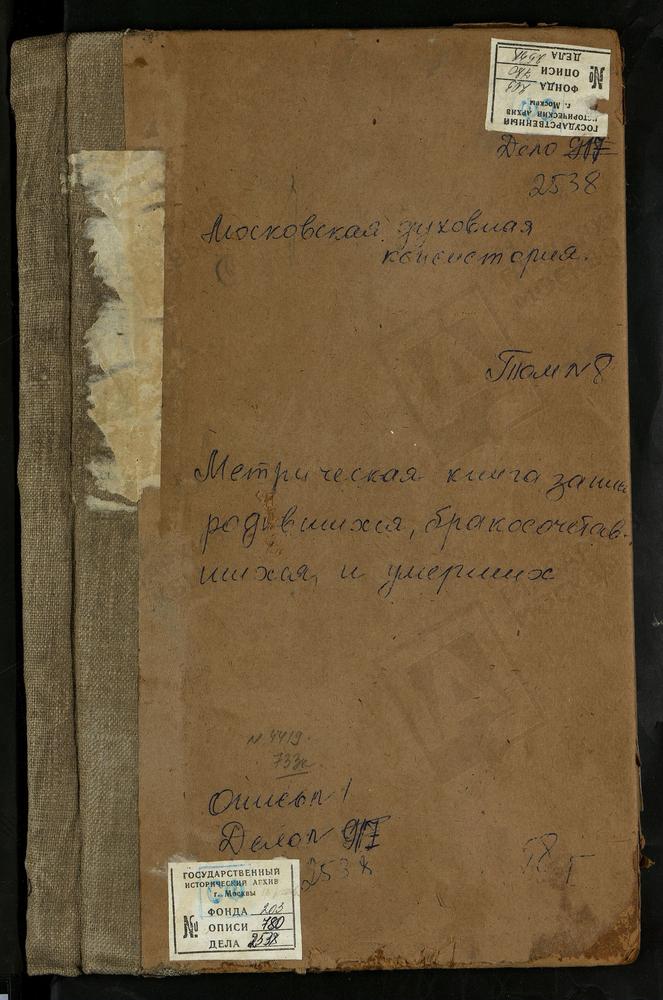 ГОСУДАРСТВЕННЫЙ
ИСТОРИЧЕСКИЙ АРХИВ
г. Москвы
ФОНДА 203
№ ОПИСИ 780
ДЕЛА
Дело 917
2538
Московская духовная
консистория.
Том N 8
Метрическая книга
родившихся, бракосочетав-
шихся, и умерших
N 4419.
733
Опись N 1
Дело N 917
2538
ГОСУДАРСТВЕННЫЙ
ИСТОРИЧЕСКИЙ АРХИВ
г. Москвы
ФОНДА 203
№ ОПИСИ 780
ДЕЛА 2538